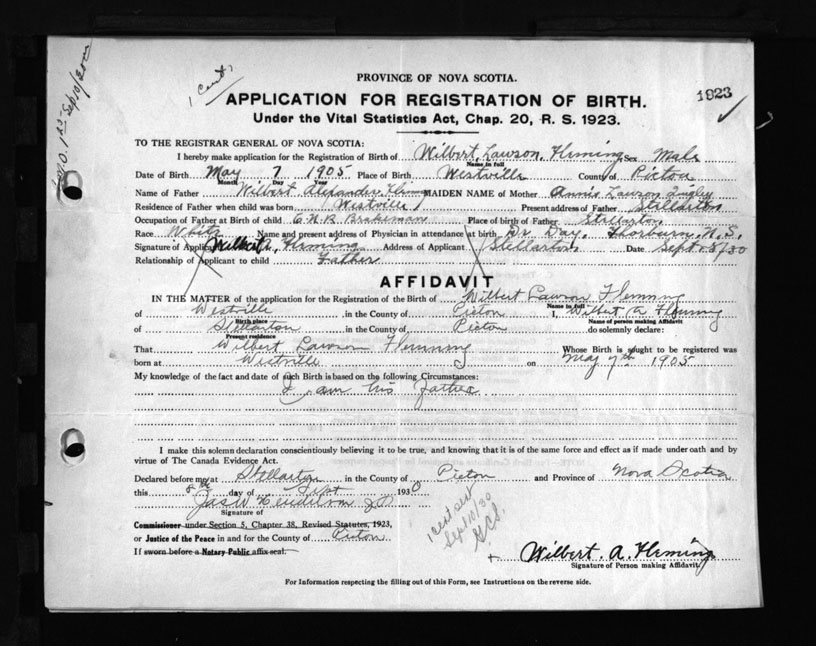 PROVINCE OF NOVA SCOTIA.
1 Cent,
1923
APPLICATION FOR REGISTRATION OF BIRTH.
Under the Vital Statistics Act, Chap. 20, R. S. 1923.
TO THE REGISTRAR GENERAL OF NOVA SCOTIA:
I hereby make application for the Registration of Birth of Wilbert Lawson Fleming Sex Male
Name in full
Date of Birth May 7 1905 Place of Birth Westville County of Pictou
Month Day Year
Name of Father Wilbert Alexander Fleming MAIDEN NAME of Mother Annie Lawson
Residence of Father when child was born Westville Present address of Father Stellarton
Occupation of Father at Birth of child C.N.R. Brakeman Place of birth of Father Stellarton
Race White Name and present address of Physician in attendance at birth Dr. Day, Thorburn, N.S.
Signature of Applicant Wilbert A. Fleming Address of Applicant Stellarton Date Sept 8/30
Relationship of Applicant to child Father
AFFIDAVIT
IN THE MATTER of the application for the Registration of the Birth of Wilbert Lawson Fleming
Name in full
of Westville in the County of Pictou I, Wilbert A Fleming
Birth place Name of person making Affidavit
of Stellarton in the County of Pictou do solemnly declare:
Present residence
That Wilbert Lawson Flemming Whose Birth is sought to be registered was
born at Westville on May 7th 1905
My knowledge of the fact and date of such Birth is based on the following Circumstances:
I am his father
I make this solemn declaration conscientiously believing it to be true, and knowing that it is of the same force and effect as if made under oath and by
virtue of The Canada Evidence Act.
Declared before me at Stellarton in the County of Pictou and Province of Nova Scotia
this 8th day of Sept 1930
Jas W Henderson J.P.
Signature of
Commissioner under Section 5, Chapter 38, Revised Statutes, 1923,
or Justice of the Peace in and for the County of Pictou
If sworn before a Notary Public affix seal.
1 cent
Sept 10/30
Wilbert. A. Fleming
Signature of Person making Affidavit
For Information respecting the filling out of this Form, see Instructions on the reverse side.